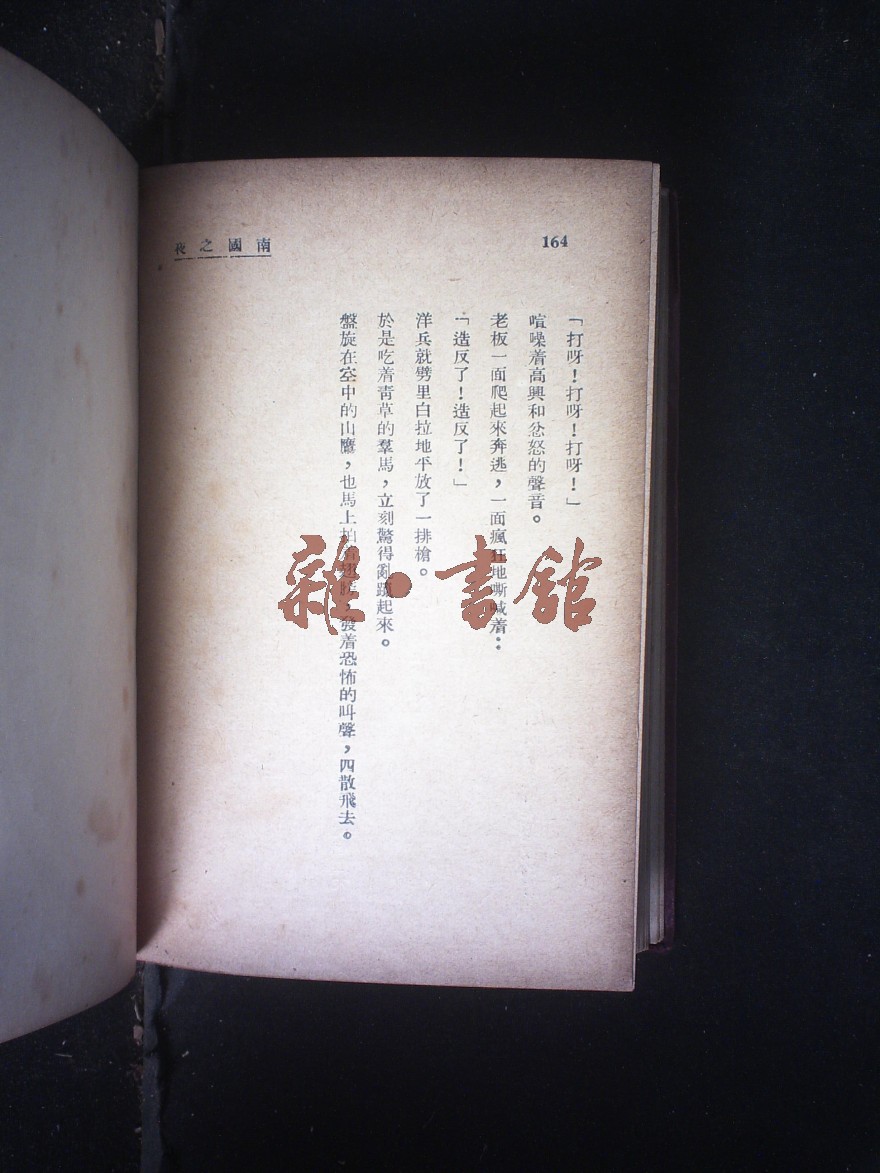 164
南國之夜
「打呀！打呀！打呀！」
喧噪着高興和忿怒的聲音。
老板一面爬起來奔逃，一面瘋狂地嘶喊着：
「造反了！造反了！」
洋兵就劈里白拉地平放了一排槍。
於是吃着靑草的羣馬，立刻驚得亂跳起來。
盤旋在空中的山鷹，也馬上拍着翅膀，發着恐怖的叫聲，四散飛去。
雜·書館